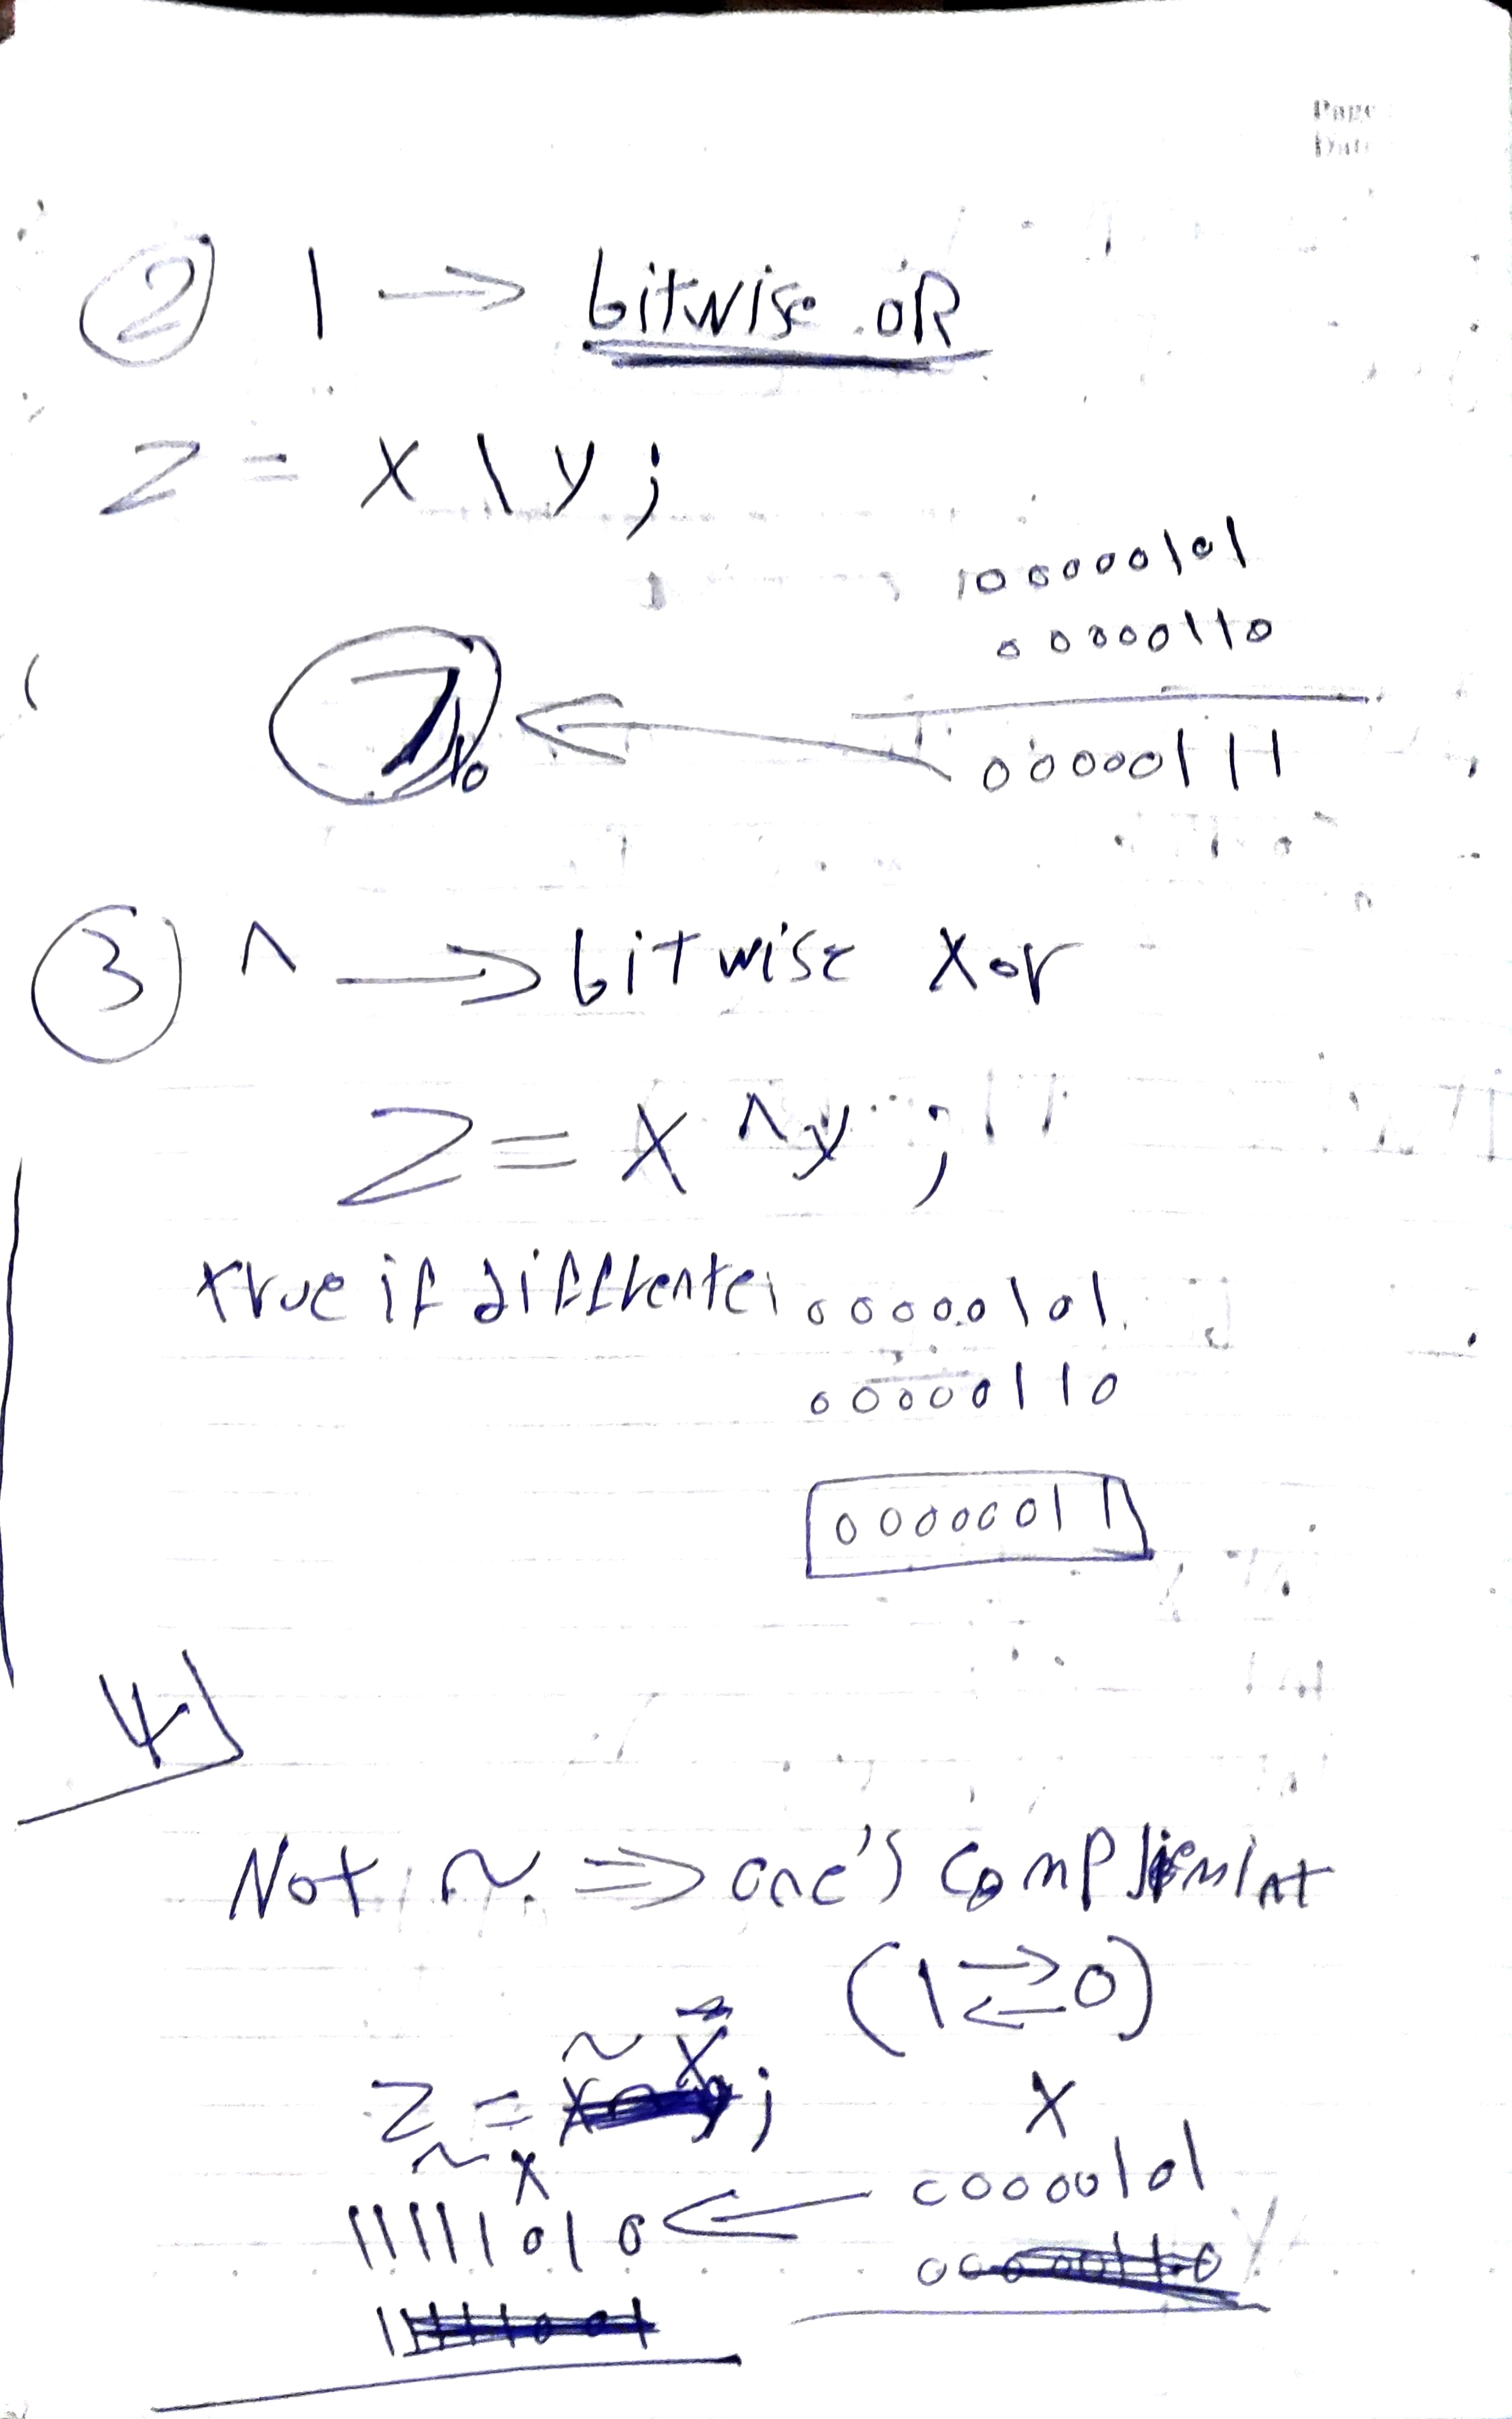 Page
Date
② | → bitwise OR
Z = X | y ;
00000101
00000110
00000111
7
10
③ ^ → bitwise Xor
Z = X ^ y ;
true if differente 00000101
00000110
00000011
4
Not ~ ⇒ one's complement
(1 ⇄ 0)
Z = ~ X ;
X
~ X
00000101
11111010